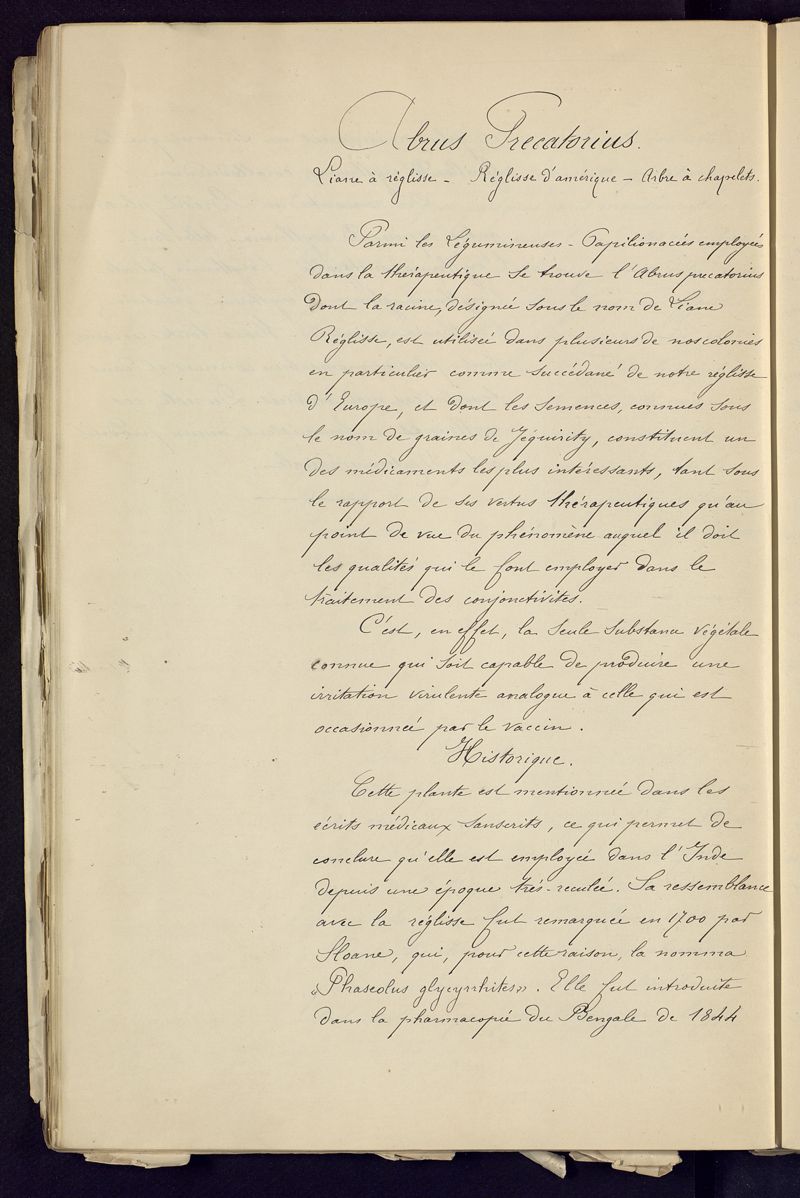 Abrus Precatorius.
Liane à réglisse - Réglisse d'amérique - Arbre à chapelets.
Parmi les Légumineuses-Papilionacées employées
dans la thérapeutique se trouve l'Abrus precatorius
dont la racine, désignée sous le nom de Liane
Réglisse, est utilisée dans plusieurs de nos colonies
en particulier comme succédané de notre réglisse
d'Europe, et dont les semences, connues sous
le nom de graines de Jéquirity, constituent un
des médicaments les plus intéressants, tant sous
le rapport de ses vertus thérapeutiques qu'au
point de vue du phénomène auquel il doit
les qualités qui le font employer dans le
traitement des conjonctivites.
C'est, en effet, la seule substance végétale
connue qui soit capable de produire une
irritation virulente analogue à celle qui est
occasionnée par le vaccin.
Historique.
Cette plante est mentionnée dans les
écrits médicaux sanscrits, ce qui permet de
conclure qu'elle est employée dans l'Inde
depuis une époque très-reculée. Sa ressemblance
avec la réglisse fut remarquée en 1700 par
Sloane, qui, pour cette raison, la nomma
"Phaseolus glycyrrhites". Elle fut introduite
dans la pharmacopié du Bengale de 1844